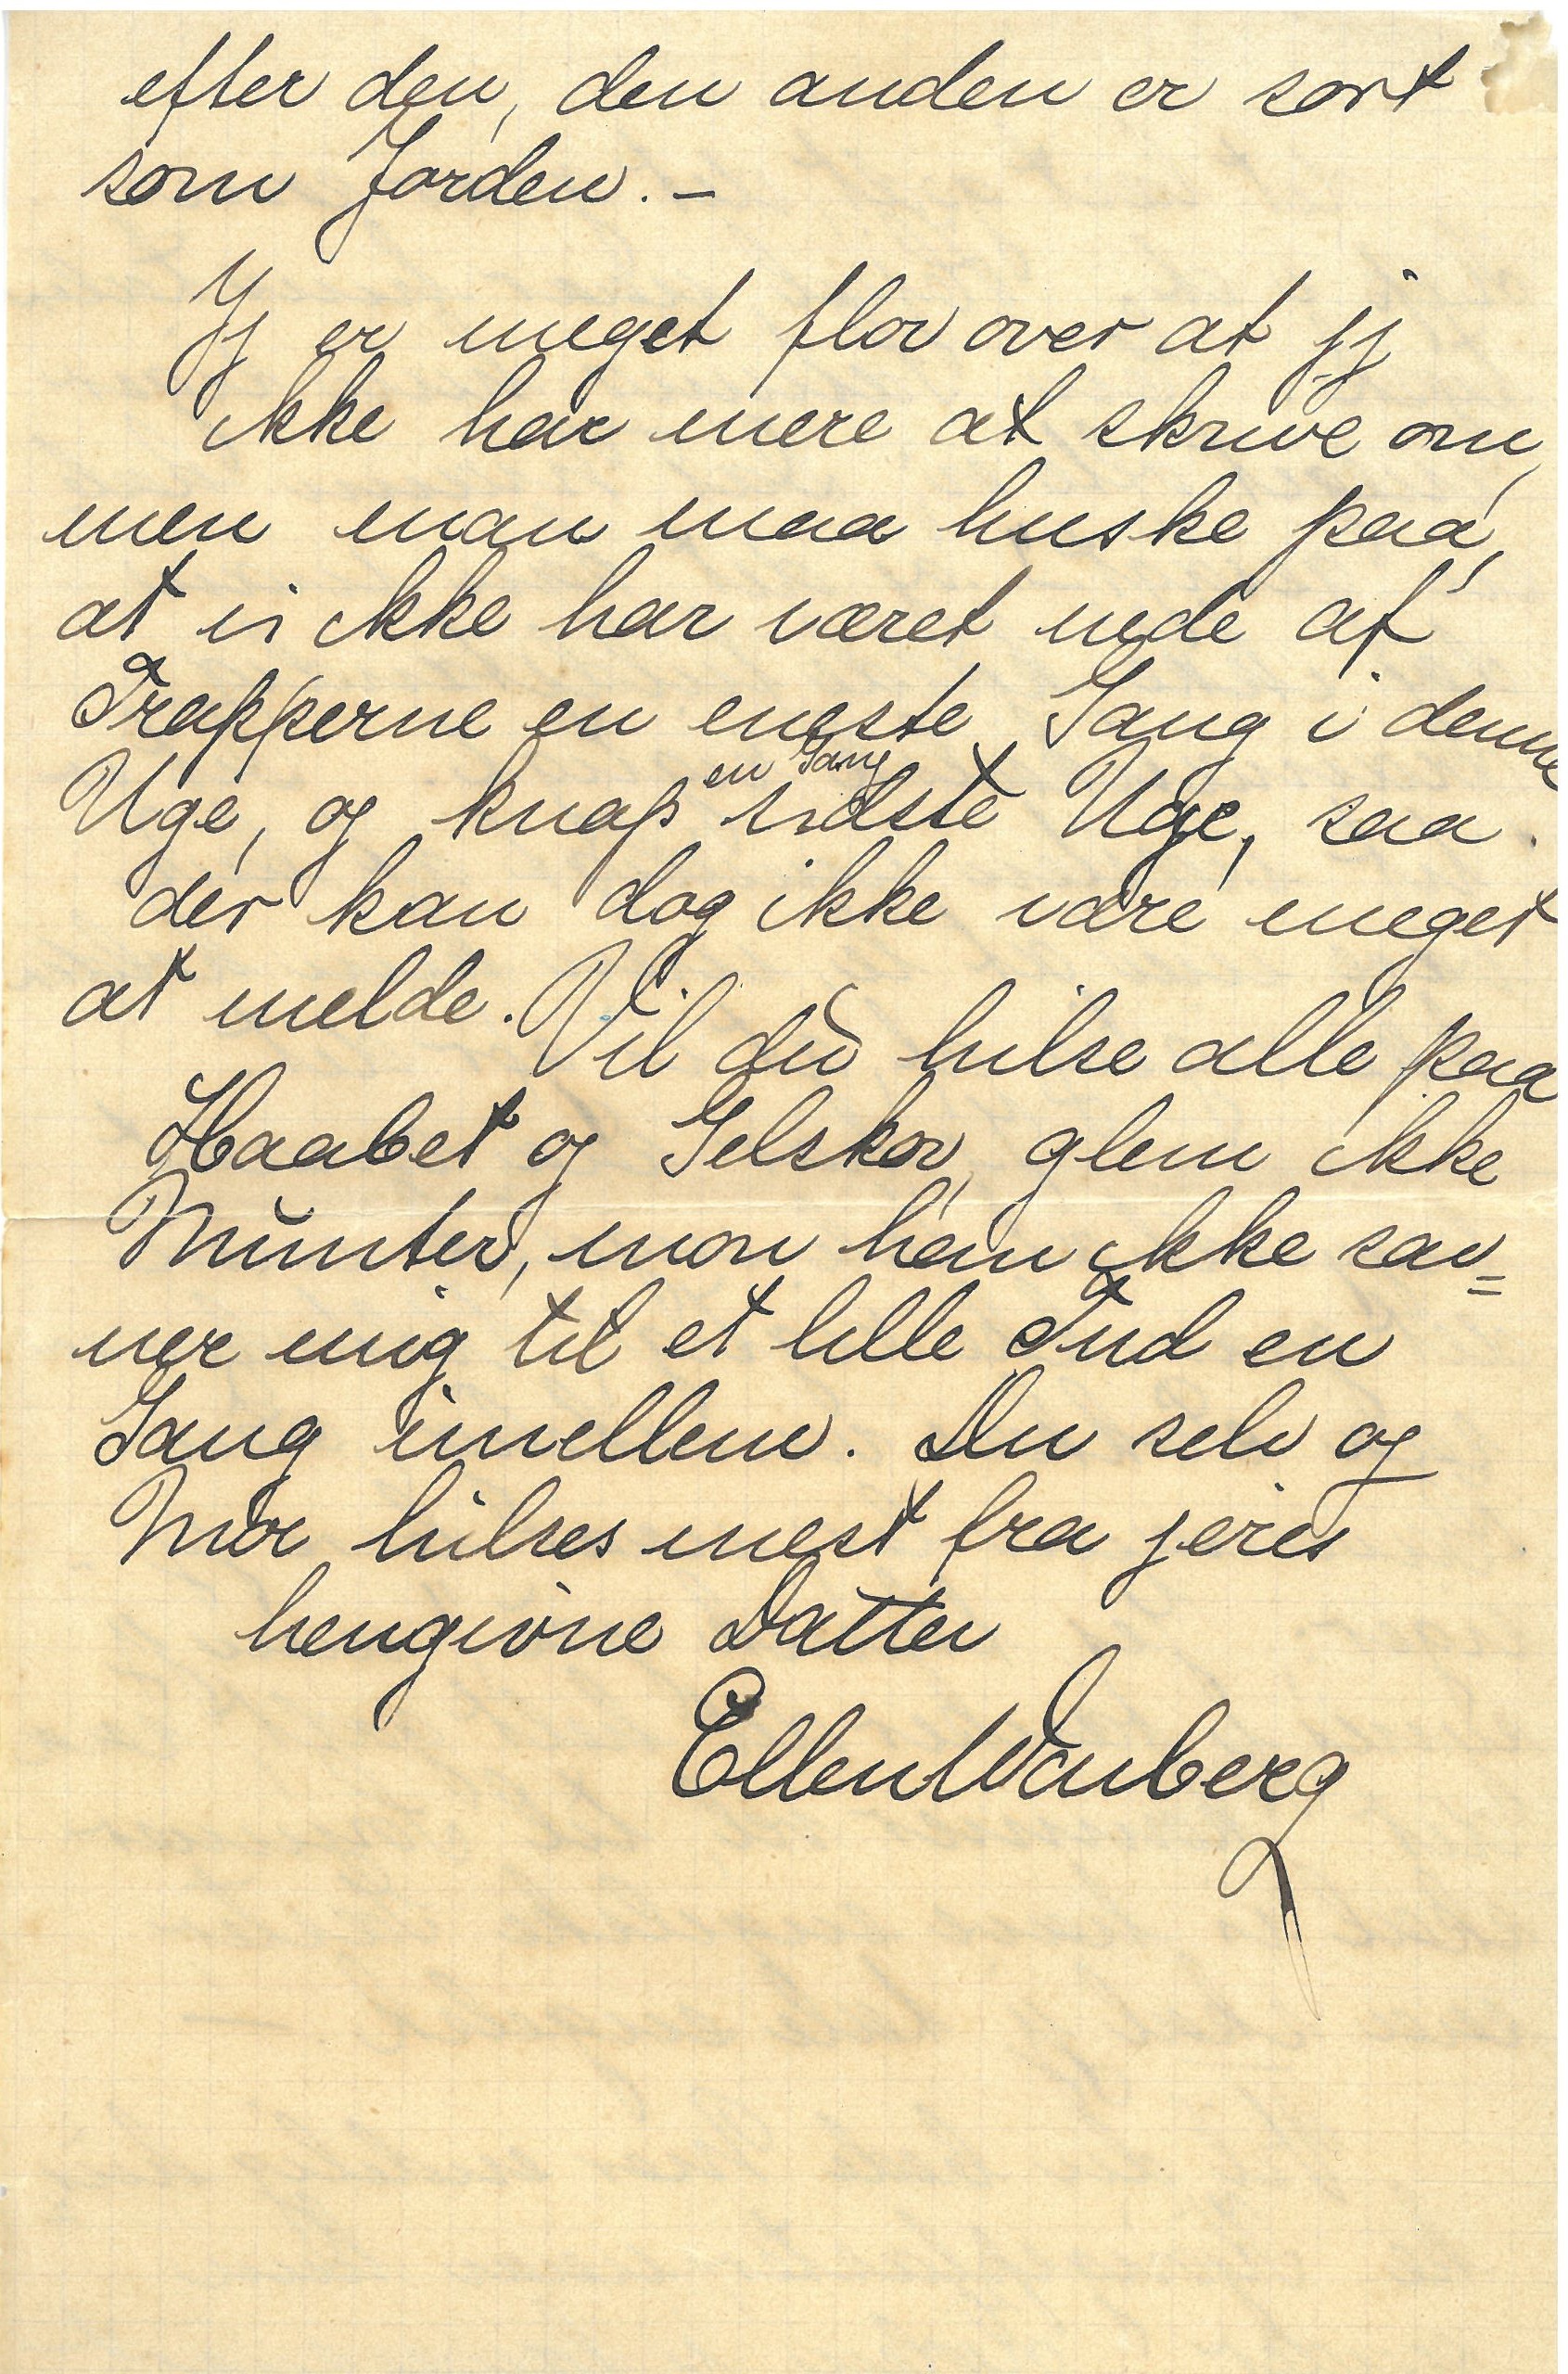 efter den, den anden er sort
som Jorden. –
Jj er meget flov over at jj
ikke har mere at skrive om,
men man maa huske paa,
at vi ikke har været nede af
Trapperne en eneste Gang i denne
Uge, og knap en Gang sidste Uge, saa
der kan dog ikke være meget
at melde. Vil du hilse alle paa
Haabet og Gelskov, glem ikke
Munter, mon han ikke sav=
ner mig til et lille Tud en
Gang imellem. Du selv og
Mor hilses mest fra jeres
hengivne Datter
Ellen Warberg